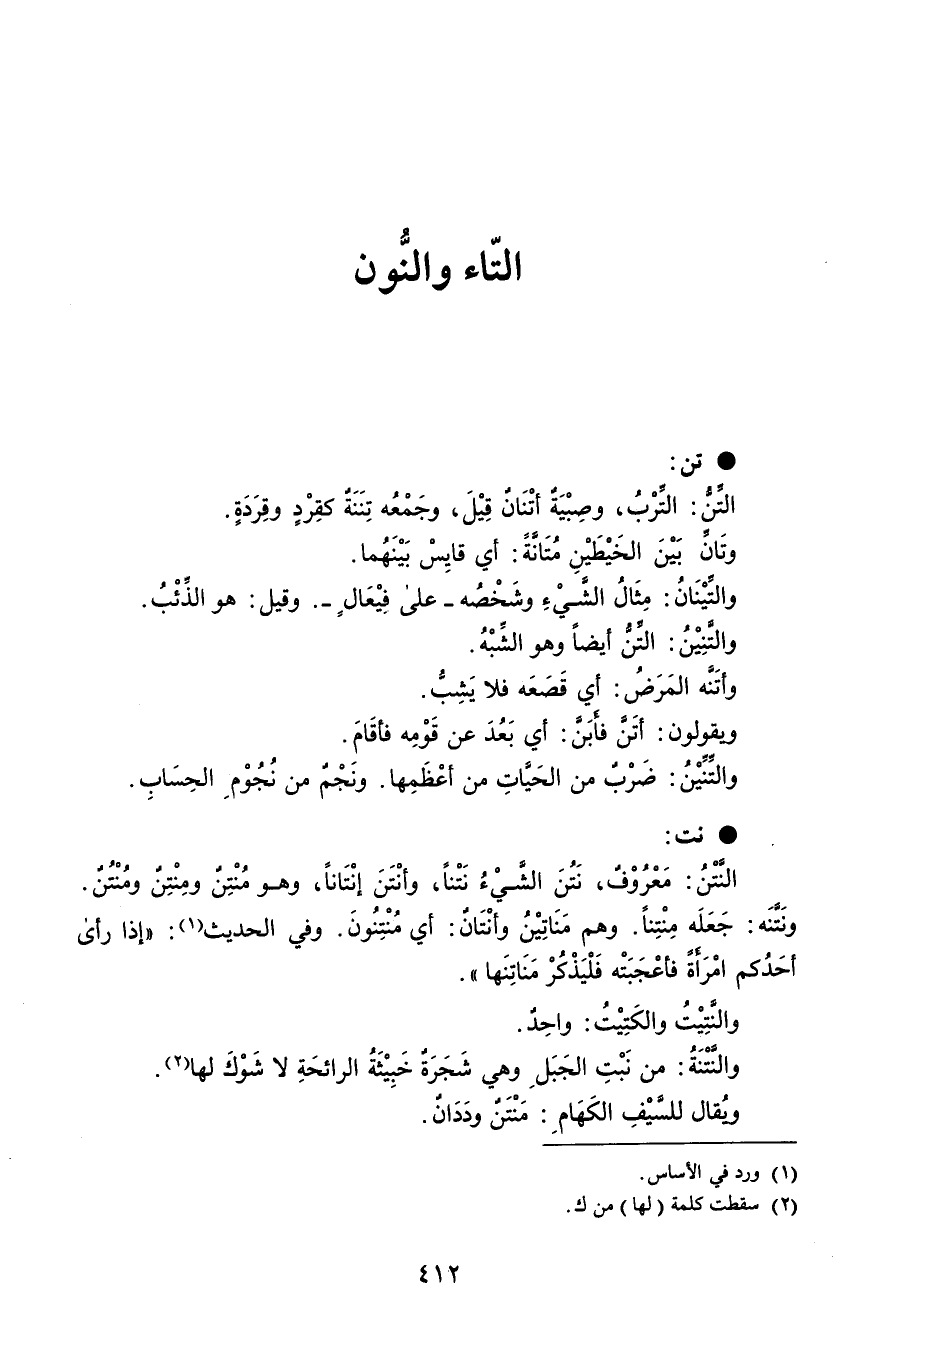 التّاء والنُّون
● تن:
التِّنُّ: التِّرْبُ، وصِبْيَةٌ أتْنَانٌ قِيْلَ، وجَمْعُه تِنَنَةٌ كقِرْدٍ وقِرَدَةٍ.
وتَانِّ بَيْنَ الخَيْطَيْنِ مُتَانَّةً: أي قايِسْ بَيْنَهُما.
والتِّيْنَانُ: مِثَالُ الشَّيْءِ وشَخْصُه ـ علىٰ فِيْعَالٍ ـ. وقيل: هو الذِّئْبُ.
والتَّنِيْنُ: التِّنُّ أيضاً وهو الشِّبْهُ.
وأتَنَّه المَرَضُ: أي قَصَعَه فلا يَشِبُّ.
ويقولون: أتَنَّ فأَبَنَّ: أي بَعُدَ عن قَوْمِه فأقَامَ.
والتِّنِّيْنُ: ضَرْبٌ من الحَيَّاتِ من أعْظَمِها. ونَجْمٌ من نُجُوْمِ الحِسَابِ.
● نت:
النَّتْنُ: مَعْرُوْفٌ، نَتُنَ الشَّيْءُ نَتْناً، وأنْتَنَ إنْتَاناً، وهو مُنْتِنٌ ومِنْتِنٌ ومُنْتُنٌ.
ونَتَّنَه: جَعَلَه مِنْتِناً. وهم مَنَاتِيْنُ وأنْتَانٌ: أي مُنْتِنُونَ. وفي الحديث(١): «إذا رأىٰ
أحَدُكم امْرَأةً فأعْجَبَتْه فَلْيَذْكُرْ مَنَاتِنَها».
والنَّتِيْتُ والكَتِيْتُ: واحِدٌ.
والنَّتْنَةُ: من نَبْتِ الجَبَلِ وهي شَجَرَةٌ خَبِيْثَةُ الرائحَةِ لا شَوْكَ لها(٢).
ويُقال للسَّيْفِ الكَهَامِ: مَنْتَنٌ ودَدَانٌ.
(١) ورد في الأساس.
(٢) سقطت كلمة (لها) من ك.
٤١٢